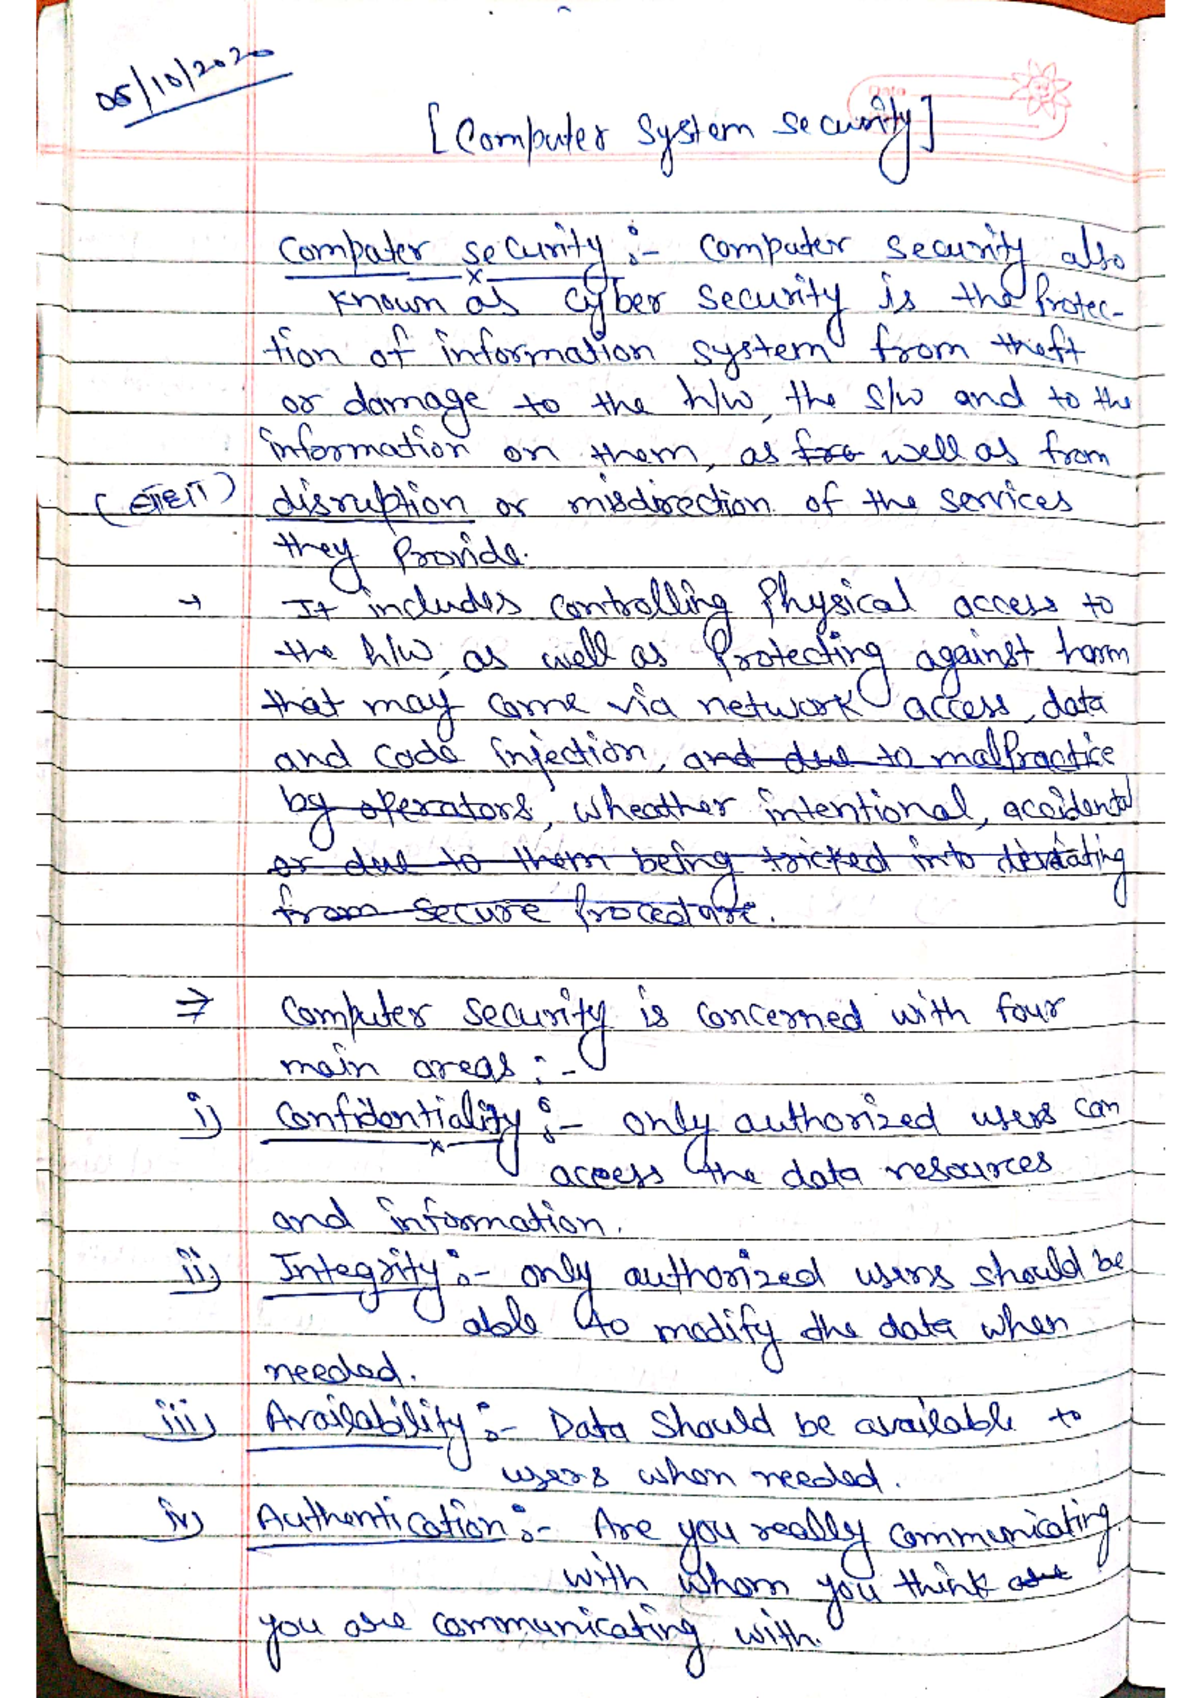 05/10/2020
Date
[Computer System Security]
Computer security :- Computer security also
known as cyber security is the Protec-
tion of information system from theft
or damage to the h/w, the s/w and to the
information on them, as for well as from
disruption or misdirection of the services
they Provide.
→ It includes controlling Physical access to
the h/w, as well as Protecting against harm
that may come via network access, data
and code injection, and due to malpractice
by operators, wheather intentional, accidental
or due to them being tricked into deviating
from secure Procedure.
⇒ Computer security is concerned with four
main areas :-
i) Confidentiality :- only authorized users can
access the data resources
and information.
ii) Integrity :- only authorized users should be
able to modify the data when
needed.
iii) Availability :- Data should be available to
users when needed.
iv) Authentication :- Are you really communicating
with whom you think
you are communicating with.